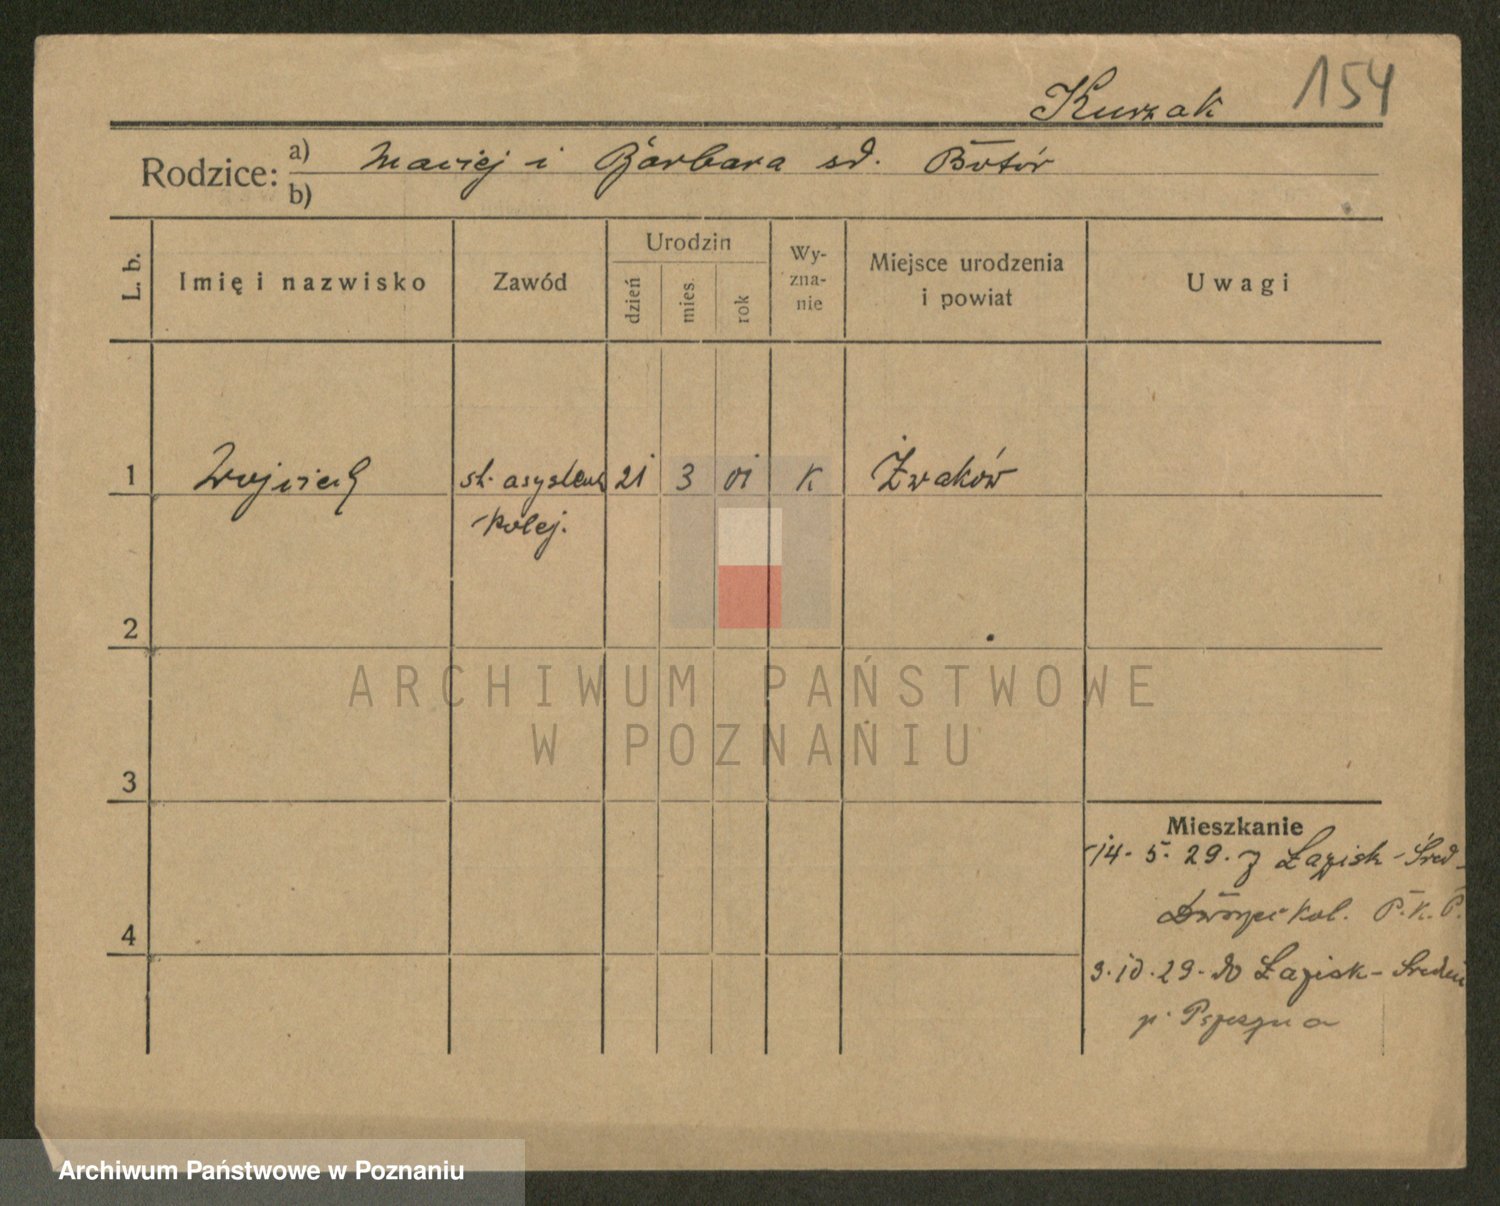 Kurzak 154
Rodzice: a) Maciej i Barbara sd. Botór
b)
L. b. Imię i nazwisko Zawód Urodzin dzień mies. rok Wy-zna-nie Miejsce urodzenia i powiat Uwagi
1 Wojciech st. asystent 21 3 01 K Żwaków
kolej.
2
3
Mieszkanie
14. 5. 29. z Łazisk - Śred
kol. P. K. P.
4
3. 10. 29. do Łazisk -
p.
ARCHIWUM PAŃSTWOWE
W POZNANIU
Archiwum Państwowe w Poznaniu